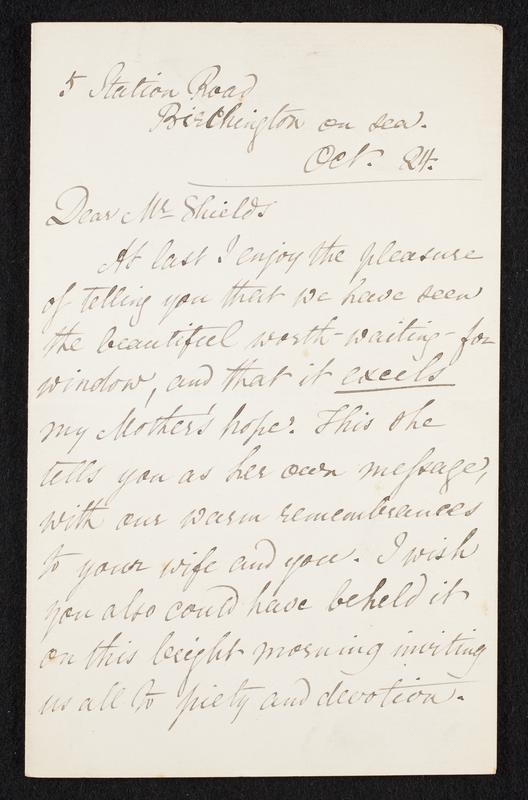 5 Station Road
Birchington on sea.
Oct. 24.
Dear Mr Shields
At last I enjoy the pleasure
of telling you that we have seen
the beautiful worth-waiting-for
window, and that it excels
my Mother's hope. This she
tells you as her own meſsage,
with our warm remembrances
to your wife and you. I wish
you also could have beheld it
on this bright morning inviting
us all to piety and devotion.